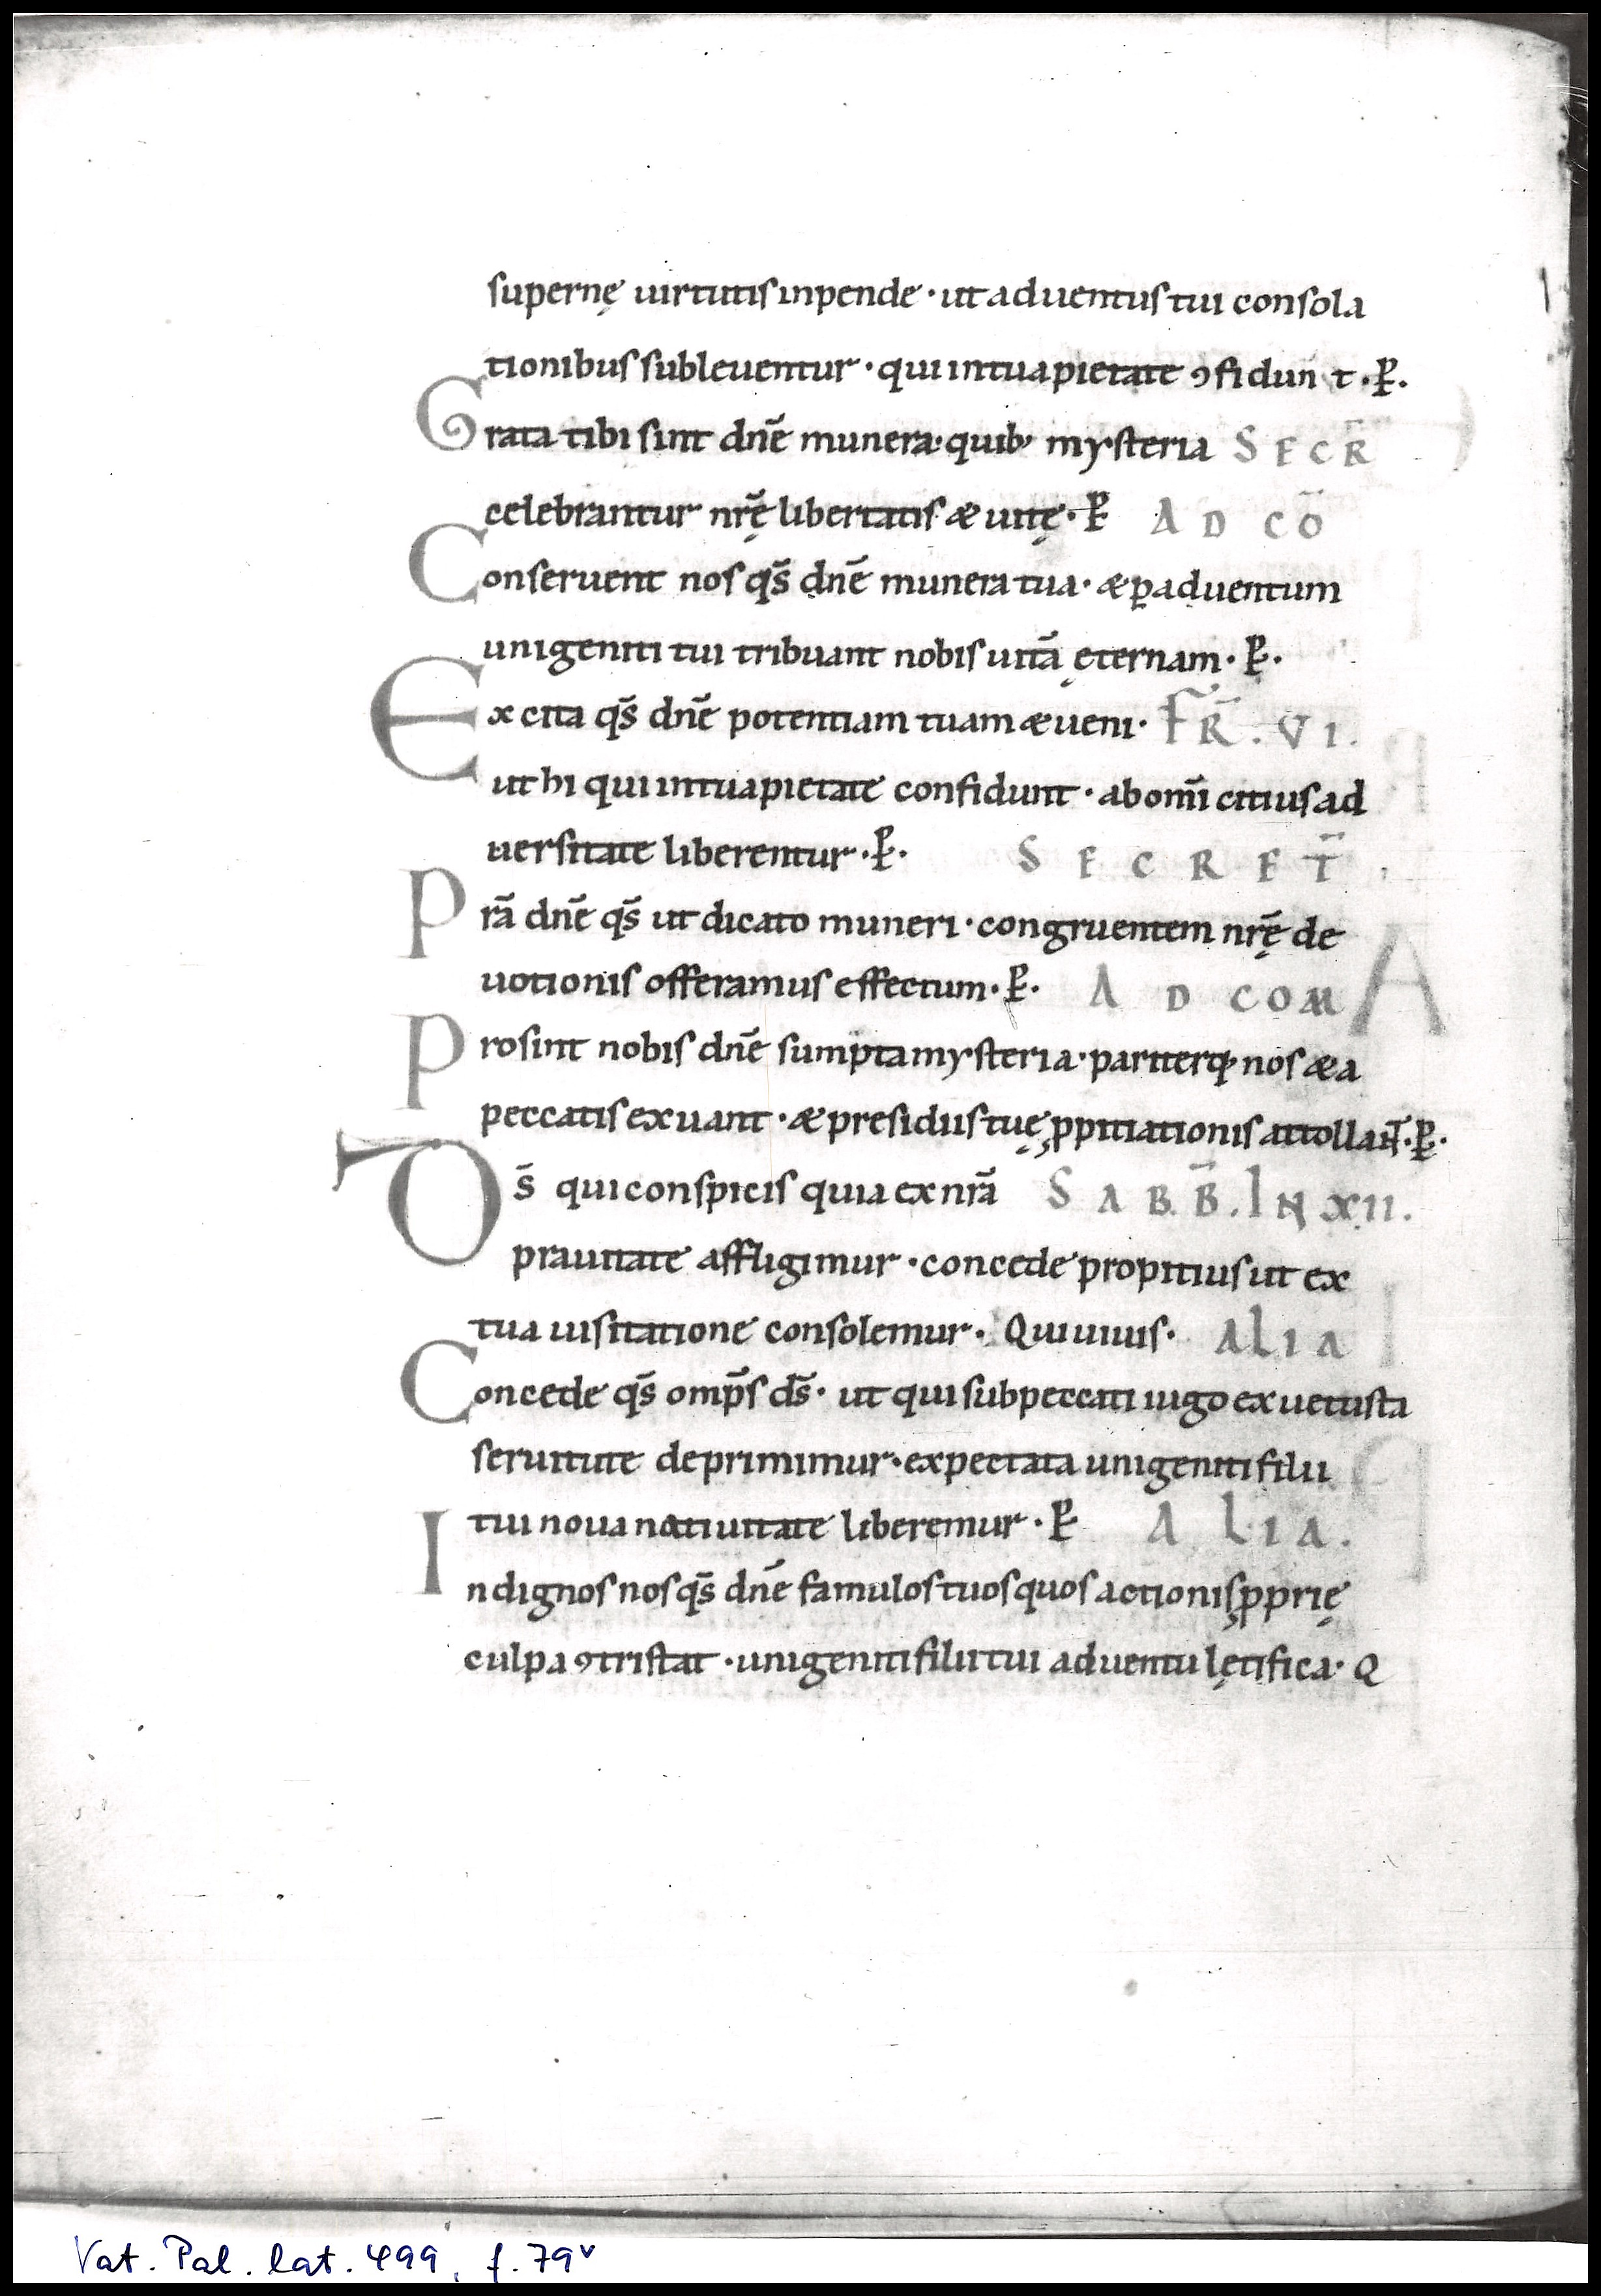 supernę uirtutis inpende · ut aduentus tui consola
tionibus subleuentur · qui in tua pietate ꝯfidunt · P̶.
Grata tibi sint dnē munera · quib; mysteria SECR̄
celebrantur nrę̄ libertatis & uitę · P̶ AD CŌ
Conseruent nos qs̄ dnē munera tua · & ꝑ aduentum
unigeniti tui tribuant nobis uitā ęternam · P̶.
Excita qs̄ dnē potentiam tuam & ueni · FR̄. VI.
ut hi qui in tua pietate confidunt · ab om̄i citius ad
uersitate liberentur · P̶. SECRET̄
Prā dnē qs̄ ut dicato muneri · congruentem nrę̄ de
uotionis offeramus effectum · P̶. AD COM
Prosint nobis dnē sumpta mysteria · pariterq; nos & a
peccatis exuant · & presidiis tuę ꝓpitiationis attollant · P̶.
Ds̄ qui conspicis quia ex nrā SABB̄. IN XII.
prauitate affligimur · concede propitius ut ex
tua uisitatione consolemur · Qui uiuis · ALIA
Concede qs̄ omps̄ ds̄ · ut qui sub peccati iugo ex uetusta
seruitute deprimimur · expectata unigeniti filii
tui noua natiuitate liberemur · P̶ ALIA.
Indignos nos qs̄ dnē famulos tuos quos actionis ꝓprię
culpa ꝯtristat · unigeniti filii tui aduentu lętifica · Q
Vat. Pal. lat. 499, f. 79v